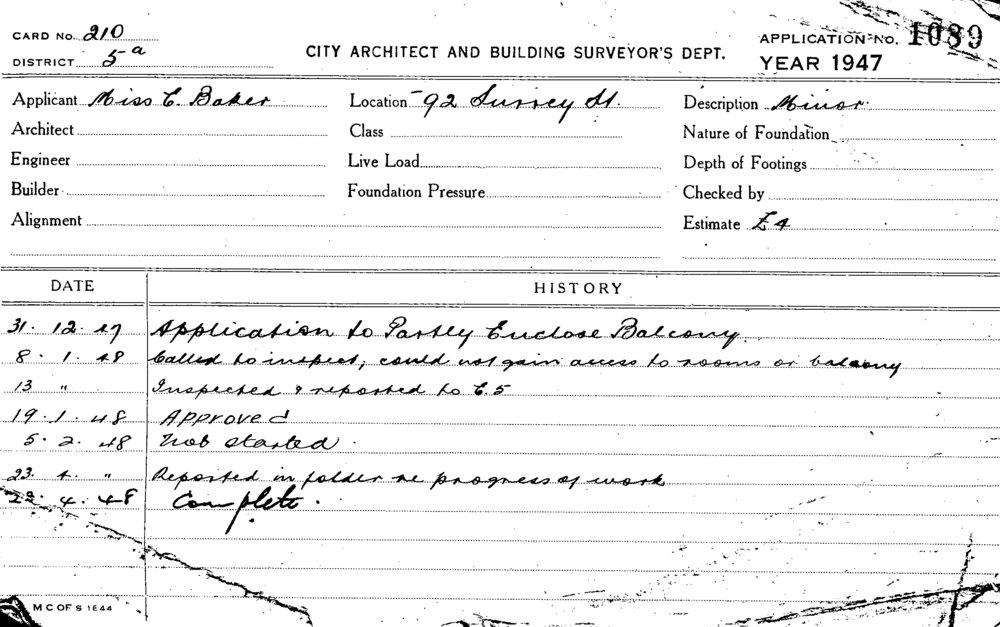 CARD No. 210
DISTRICT 5a
CITY ARCHITECT AND BUILDING SURVEYOR'S DEPT.
APPLICATION No. 1089
YEAR 1947
Applicant Miss E. Baker Location 92 Surrey St. Description Minor
Architect Class Nature of Foundation
Engineer Live Load Depth of Footings
Builder Foundation Pressure Checked by
Alignment Estimate £4
DATE HISTORY
31. 12. 47 Application to Partly Enclose Balcony.
8. 1. 48 Called to inspect, could not gain access to rooms or balcony
13 " Inspected & reported to C.5
19. 1. 48 Approved
5. 2. 48 Not started.
23. 4. " Reported in folder re progress of work
22. 4. 48 Complete.
M C OF S 1644